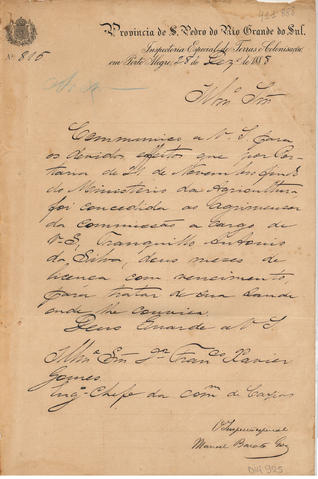 422 888
Provincia de S. Pedro do Rio Grande do Sul.
Inspectoria Especial de Terras e Colonisação
em Porto Alegre, 28 de Dezº de 1888
Nº 816
Illmº Snr
Communico a V. S. para
os devidos effeitos que por Por-
taria de 24 de Novembro findo
do Ministerio da Agricultura
foi concedida ao Agrimensor
da commissão a cargo de
V. S., Tranquillo Antonio
da Silva, dous mezes de
licença com vencimento,
para tratar de sua saude
onde lhe convier.
Deus Guarde a V. S.
Illmº Snr Dr Francº Xavier
Gomes
Engº Chefe da comm de Caxias
O Inspector especial
Manoel Barata
DM 925